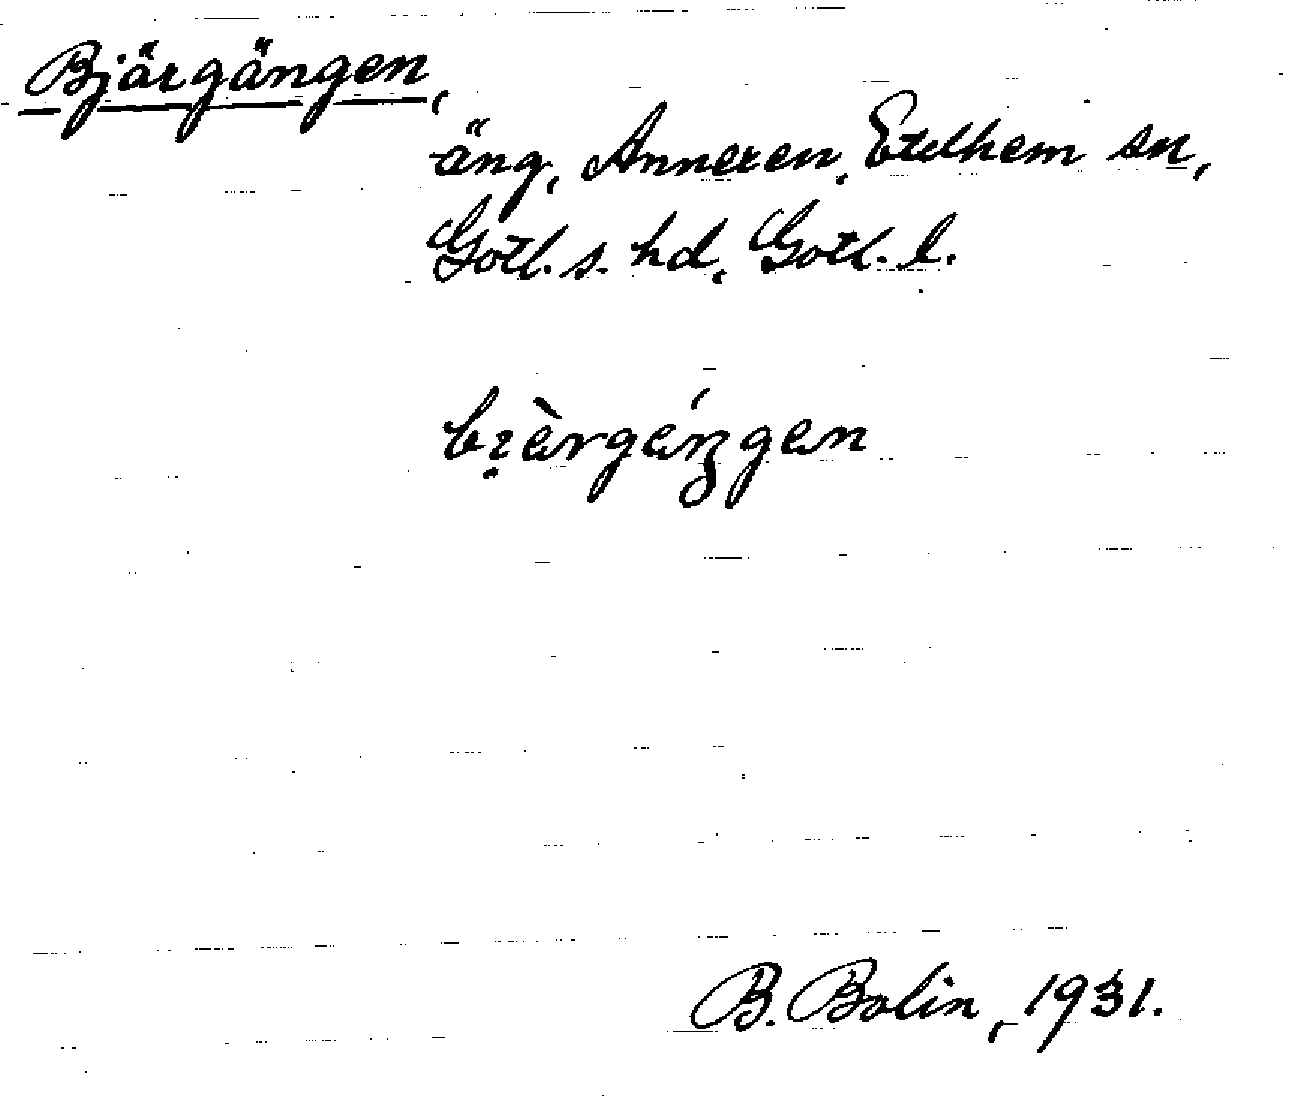 Bjärgängen,
äng, Annexen, Etelhem sn,
Gotl. s. hd, Gotl. l.
B. Bolin, 1931.